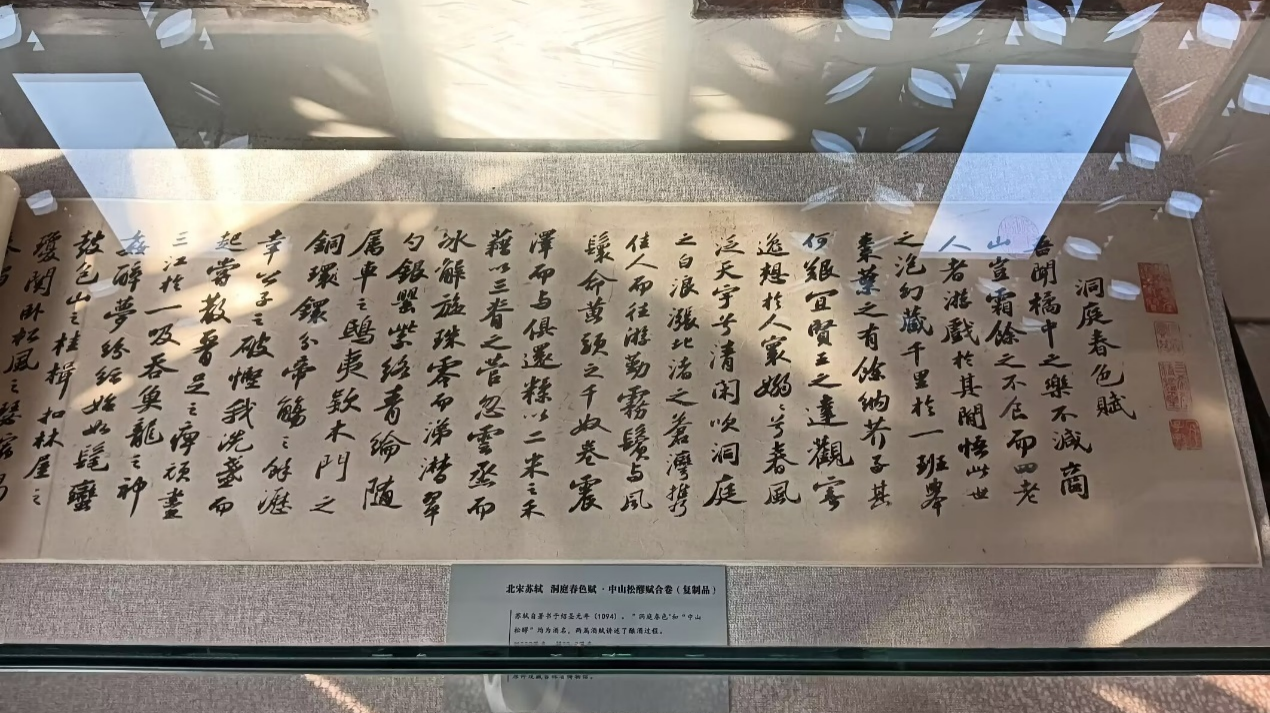 洞庭春色賦
吾聞橘中之樂不減商
山豈霜餘之不食而四老
人者游戲於其間悟此世
之泡幻藏千里於一班舉
棗葉之有餘納芥子其
何艱宜賢王之達觀寄
逸想於人寰嫋〻兮春風
泛天宇兮清閑吹洞庭
之白浪漲北渚之蒼灣攜
佳人而往游勤霧鬢與風
鬟命黃頭之千奴卷震
澤而與俱還糅以二米之禾
藉以三脊之菅忽雲烝而
冰解旋珠零而涕潸翠
勺銀罌紫絡青綸隨
屬車之鴟夷款木門之
銅環鐶分帝觴之餘瀝
幸公子之破慳我洗盞而
起嘗散腰足之痹頑盡
三江於一吸吞魚龍之神
姦醉夢紛紜始如髦蠻
鼓包山之桂楫扣林屋之
瓊關臥松風之瑟
北宋苏轼 洞庭春色赋·中山松醪赋合卷(复制品)
苏轼自著书于绍圣元年(1094)。"洞庭春色"和"中山
松醪"均为酒名,两篇酒赋讲述了酿酒过程。